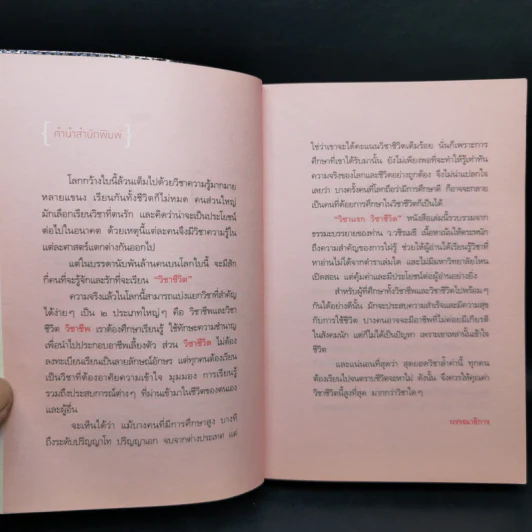 { คำนำสำนักพิมพ์ }
โลกกว้างใบนี้ล้วนเต็มไปด้วยวิชาความรู้มากมาย
หลายแขนง เรียนกันทั้งชีวิตก็ไม่หมด คนส่วนใหญ่
มักเลือกเรียนวิชาที่ตนรัก และคิดว่าน่าจะเป็นประโยชน์
ต่อไปในอนาคต ด้วยเหตุนี้แต่ละคนจึงมีวิชาความรู้ใน
แต่ละศาสตร์แตกต่างกันออกไป
แต่ในบรรดานับพันล้านคนบนโลกใบนี้ จะมีสัก
กี่คนที่จะรู้จักและรักที่จะเรียน "วิชาชีวิต"
ความจริงแล้วในโลกนี้สามารถแบ่งแยกวิชาที่สำคัญ
ได้ง่ายๆ เป็น ๒ ประเภทใหญ่ๆ คือ วิชาชีพและวิชา
ชีวิต วิชาชีพ เราต้องศึกษาเรียนรู้ ใช้ทักษะความชำนาญ
เพื่อนำไปประกอบอาชีพเลี้ยงตัว ส่วน วิชาชีวิต ไม่ต้อง
ลงทะเบียนเรียนเป็นลายลักษณ์อักษร แต่ทุกคนต้องเรียน
เป็นวิชาที่ต้องอาศัยความเข้าใจ มุมมอง การเรียนรู้
รวมถึงประสบการณ์ต่างๆ ที่ผ่านเข้ามาในชีวิตของตนเอง
และผู้อื่น
จะเห็นได้ว่า แม้บางคนที่มีการศึกษาสูง บางที
ถึงระดับปริญญาโท ปริญญาเอก จบจากต่างประเทศ แต่
ใช่ว่าเขาจะได้คะแนนวิชาชีวิตเต็มร้อย นั่นก็เพราะการ
ศึกษาที่เขาได้รับมานั้น ยังไม่เพียงพอที่จะทำให้รู้เท่าทัน
ความจริงของโลกและชีวิตอย่างถูกต้อง จึงไม่น่าแปลกใจ
เลยว่า บางครั้งคนที่โลกถือว่ามีการศึกษาดี ก็อาจจะกลาย
เป็นคนที่ด้อยการศึกษาในวิชาชีวิตก็เป็นได้
"วิชาแรก วิชาชีวิต" หนังสือเล่มนี้รวบรวมจาก
ธรรมะบรรยายของท่าน ว.วชิรเมธี เนื้อหาเน้นให้ตระหนัก
ถึงความสำคัญของการใฝ่รู้ ช่วยให้ผู้อ่านได้เรียนรู้วิชาที่
หาอ่านไม่ได้จากตำราเล่มใด และไม่มีมหาวิทยาลัยไหน
เปิดสอน แต่คุ้มค่าและมีประโยชน์ต่อผู้อ่านอย่างยิ่ง
สำหรับผู้ที่ศึกษาทั้งวิชาชีพและวิชาชีวิตไปพร้อมๆ
กันได้อย่างดีนั้น มักจะประสบความสำเร็จและมีความสุข
กับการใช้ชีวิต บางคนอาจจะมีอาชีพที่ไม่ค่อยมีเกียรติ
ในสังคมนัก แต่ก็ไม่ได้เป็นปัญหา เพราะเขาเหล่านั้นเข้าใจ
ชีวิต
และแน่นอนที่สุดว่า สุดยอดวิชาล้ำค่านี้ ทุกคน
ต้องเรียนไปจนตราบชีวิตจะหาไม่ ดังนั้น จึงควรให้คุณค่า
วิชาชีวิตนี้สูงที่สุด มากกว่าวิชาใดๆ
บรรณาธิการ